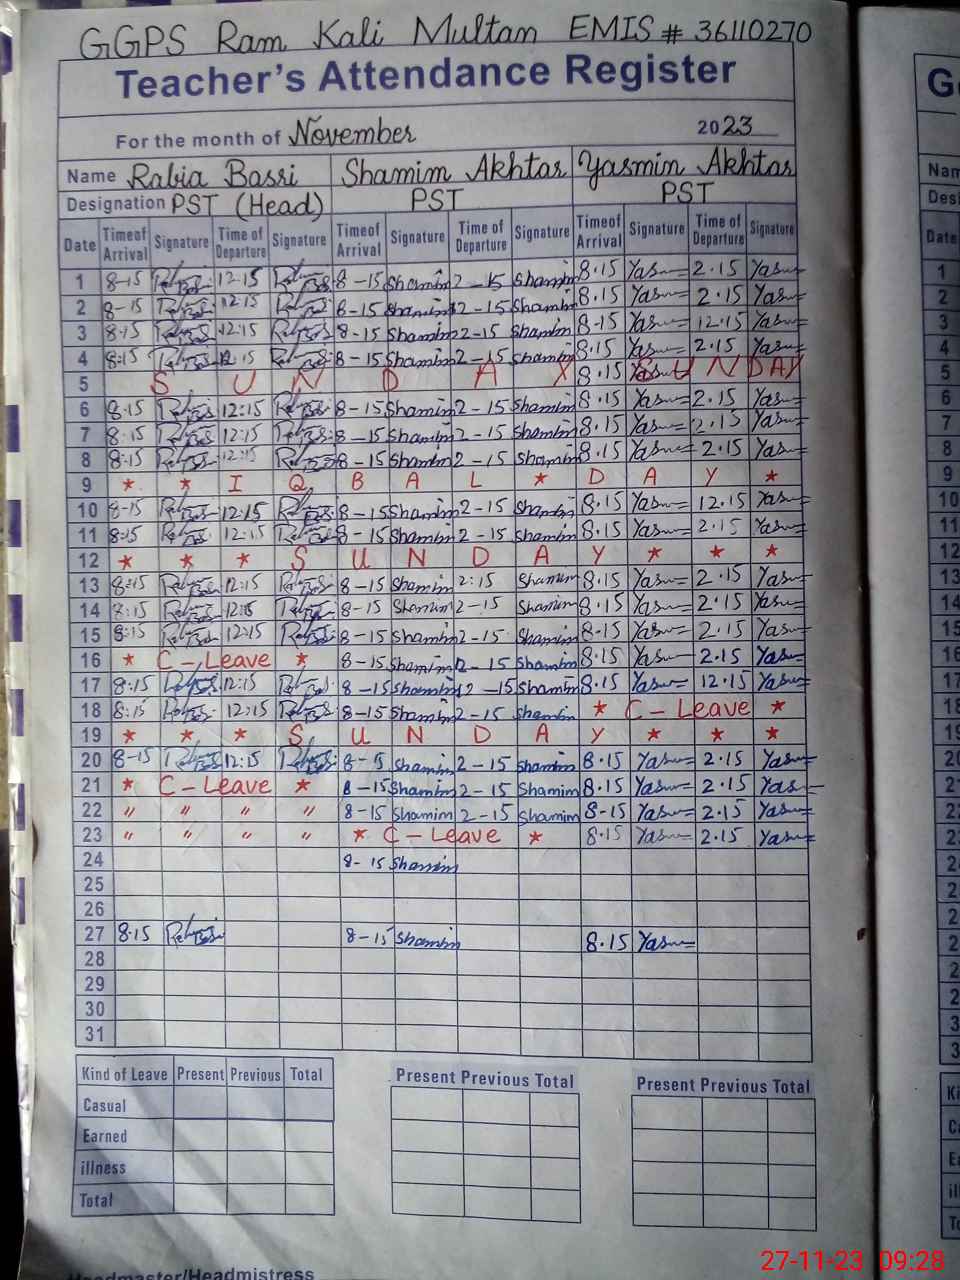 GGPS Ram Kali Multan EMIS # 36110270
Teacher's Attendance Register
For the month of November 2023
Name Rabia Bassri Shamim Akhtar Yasmin Akhtar
Designation PST (Head) PST PST
Date Timeof Arrival Signature Time of Departure Signature Timeof Arrival Signature Time of Departure Signature Timeof Arrival Signature Time of Departure Signature
1 8-15 12:15 8-15 Shamim 2-15 Shamim 8.15 Yasm 2.15 Yasm
2 8-15 12:15 8-15 Shamim 2-15 Shamim 8.15 Yasm 2.15 Yasm
3 8:15 12:15 8-15 Shamim 2-15 Shamim 8.15 Yasm 12.15 Yasm
4 8:15 12:15 8-15 Shamim 2-15 Shamim 8.15 Yasm 2.15 Yasm
5 S U N D A Y 8.15 S U N D A Y
6 8.15 12:15 8-15 Shamim 2-15 Shamim 8.15 Yasm 2.15 Yasm
7 8:15 12:15 8-15 Shamim 2-15 Shamim 8.15 Yasm 2.15 Yasm
8 8:15 12:15 8-15 Shamim 2-15 Shamim 8.15 Yasm 2.15 Yasm
9 * * I Q B A L * D A Y *
10 8-15 12:15 8-15 Shamim 2-15 Shamim 8.15 Yasm 12.15 Yasm
11 8:15 12:15 8-15 Shamim 2-15 Shamim 8.15 Yasm 2.15 Yasm
12 * * * S U N D A Y * * *
13 8:15 12:15 8-15 Shamim 2:15 Shamim 8.15 Yasm 2.15 Yasm
14 8:15 12:15 8-15 Shamim 2-15 Shamim 8.15 Yasm 2.15 Yasm
15 8:15 12:15 8-15 Shamim 2-15 Shamim 8.15 Yasm 2.15 Yasm
16 * C-Leave * 8-15 Shamim 2-15 Shamim 8.15 Yasm 2.15 Yasm
17 8:15 12:15 8-15 Shamim 2-15 Shamim 8.15 Yasm 12.15 Yasm
18 8:15 12:15 8-15 Shamim 2-15 Shamim * C-Leave *
19 * * * S U N D A Y * * *
20 8-15 12:15 8-15 Shamim 2-15 Shamim 8.15 Yasm 2.15 Yasm
21 * C-Leave * 8-15 Shamim 2-15 Shamim 8.15 Yasm 2.15 Yas
22 " " " " 8-15 Shamim 2-15 Shamim 8.15 Yasm 2.15 Yasm
23 " " " " * C-Leave * 8.15 Yasm 2.15 Yasm
24 8-15 Shamim
25
26
27 8.15 8-15 Shamim 8.15 Yasm
28
29
30
31
Kind of Leave Present Previous Total Present Previous Total Present Previous Total
Casual
Earned
illness
Total
Headmaster/Headmistress
27-11-23 09:28